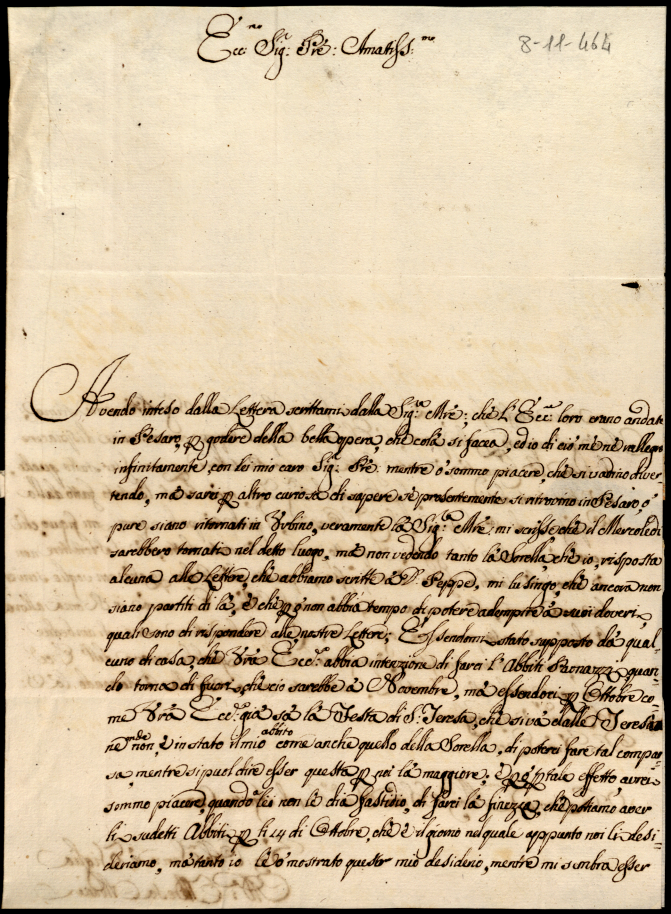 Ecc:mo Sig:r Pre: Amatiss:mo
8-11-464
Avendo inteso dalla Lettera scrittami dalla Sig:ra Mre: che L'Ecc:e loro erano andate
in Pesaro, p godere della bella opera, che colà si facea, ed io di ciò mè nè rallegro
infinitamente, con lei mio caro Sig: Pre: mentre ò sommo piacere, che si vadino diver=
tendo, mà sarei p altro curiosa di sapere sè presentemente si ritrovino in Pesaro, ò
pure siano ritornati in Urbino, veramente la Sig:ra Mre: mi scrisse che il Mercoledi
sarebbero tornati nel detto luogo, mà non vedendo tanto la Sorella che io, risposta
alcuna alle Lettere, che abbiamo scritte à D. Peppe, mi lusingo, che ancora non
siano partiti di là, è che p ò non abbia tempo di potere adempire à suoi doveri,
quali sono di rispondere alle nostre Lettere; Essendomi stato supposto dà qual=
cuno di casa, che Vrà Ecc:a abbia intenzione di farci l'Abbiti Paonazzi quan=
do torna di fuori, che ciò sarebbe à Novembre, mà essendoci p Ottobre co=
me Vrà Ecc:a già sà la Festa di S. Teresa, che si và dalle Teresia=
ne non, è in stato il mio abbito come anche quello della Sorella, di poterci fare tal compar=
sa, mentre si puol dire esser questa p noi la maggiore; è p ò p tale effetto avrei
sommo piacere, quando à lei non le dia fastidio, di farci la finezza, che potiamo aver
li sudetti Abbiti p li 14 di Ottobre, che è il giorno nel quale appunto noi li desi=
deriamo, mà tanto io le ò mostrato questo mio desiderio, mentre mi sembra esser